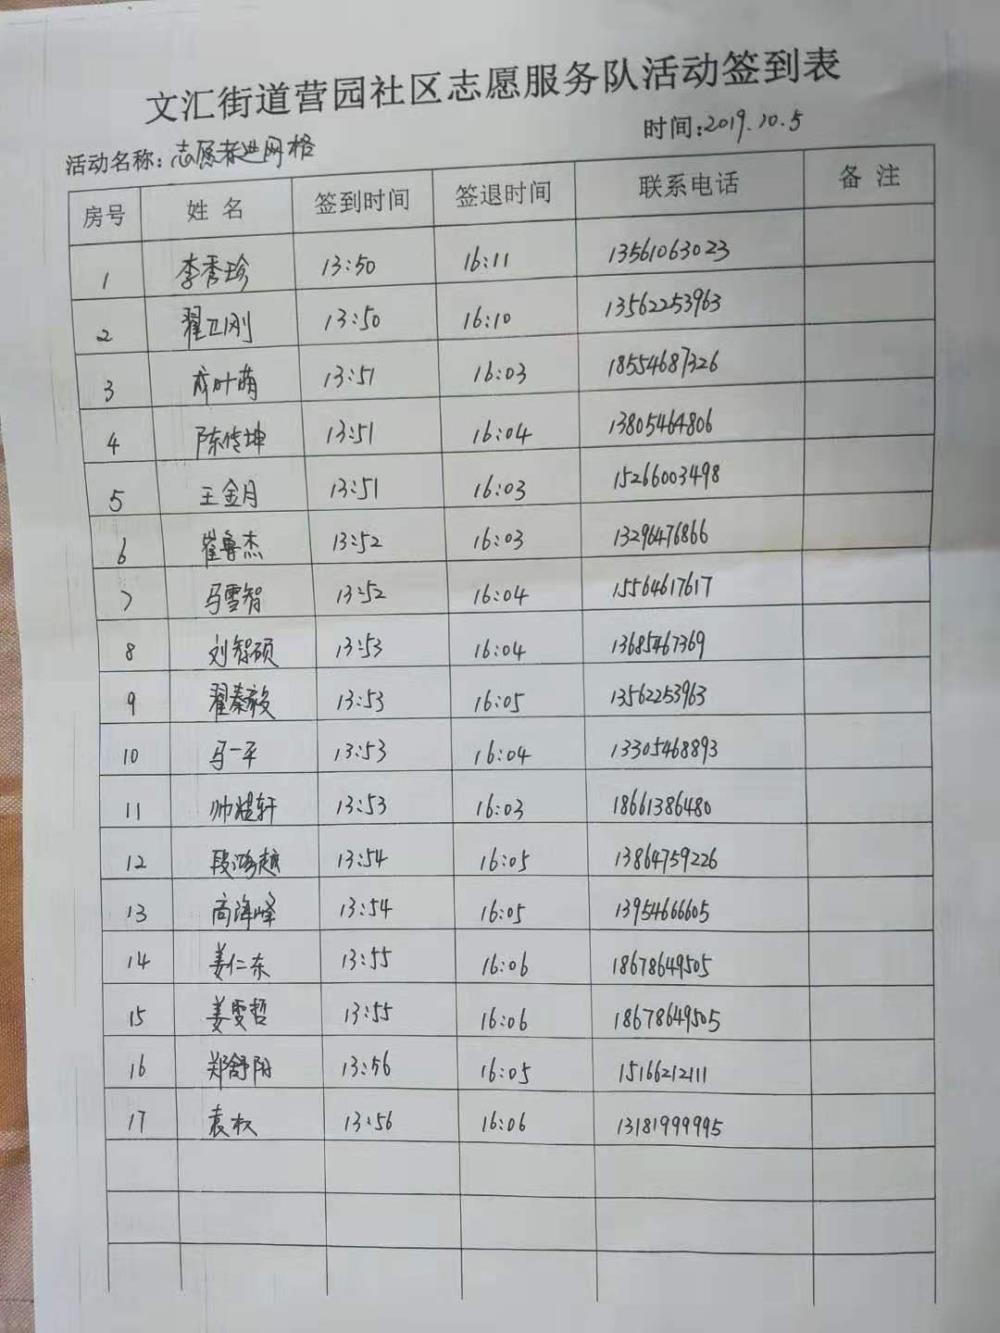 文汇街道营园社区志愿服务队活动签到表
活动名称：志愿者进网格 时间：2019.10.5
房号 姓名 签到时间 签退时间 联系电话 备注
1 李秀珍 13:50 16:11 13561063023
2 翟卫刚 13:50 16:10 13562253963
3 叶萌 13:51 16:03 18554687326
4 陈传坤 13:51 16:04 13805464806
5 王金月 13:51 16:03 15266003498
6 崔鲁杰 13:52 16:03 13296476866
7 马雪智 13:52 16:04 15564617617
8 刘智硕 13:53 16:04 13685467369
9 翟秦毅 13:53 16:05 13562253963
10 马一平 13:53 16:04 13305468893
11 帅煜轩 13:53 16:03 18661386480
12 段鸿越 13:54 16:05 13864759226
13 高海峰 13:54 16:05 13954666605
14 姜仁东 13:55 16:06 18678649505
15 姜雯哲 13:55 16:06 18678649505
16 郑舒阳 13:56 16:05 15166212111
17 袁权 13:56 16:06 13181999995